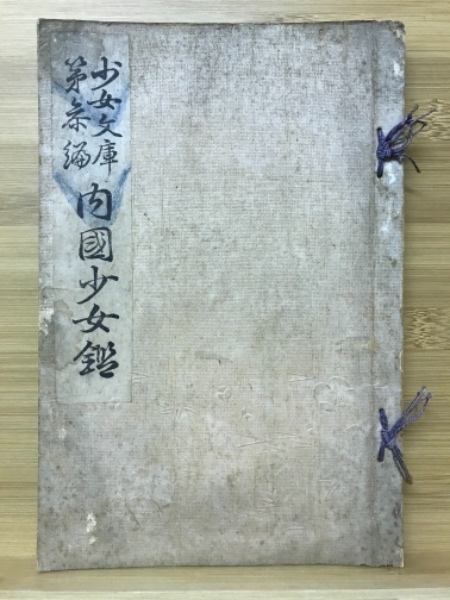 少女文庫
第参編
内國少女鑑